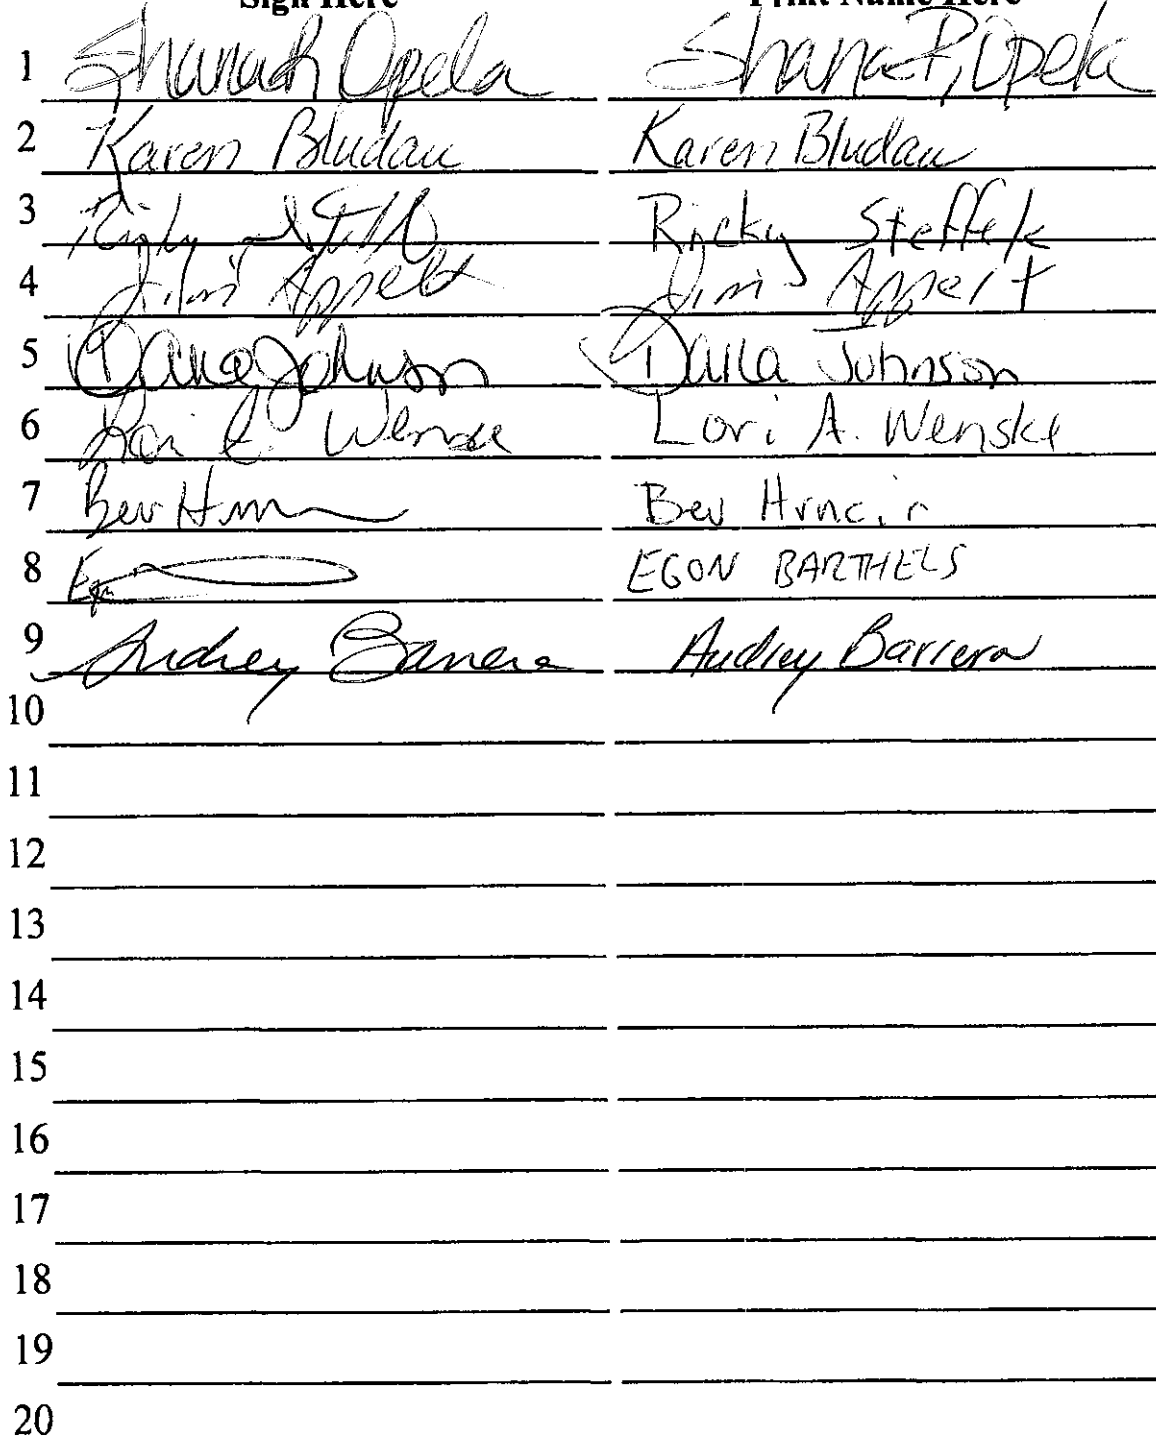 Sign Here Print Name Here
1 Shana R Opela Shana R, Opela
2 Karen Bludau Karen Bludau
3 Ricky Steffek
4 Jim Appelt Jim Appelt
5 Dana Johnson Dana Johnson
6 Lori A. Wenske
7 Bev H Bev Hrncir
8 Egon EGON BARTHELS
9 Audrey Barrera Audrey Barrera
10
11
12
13
14
15
16
17
18
19
20